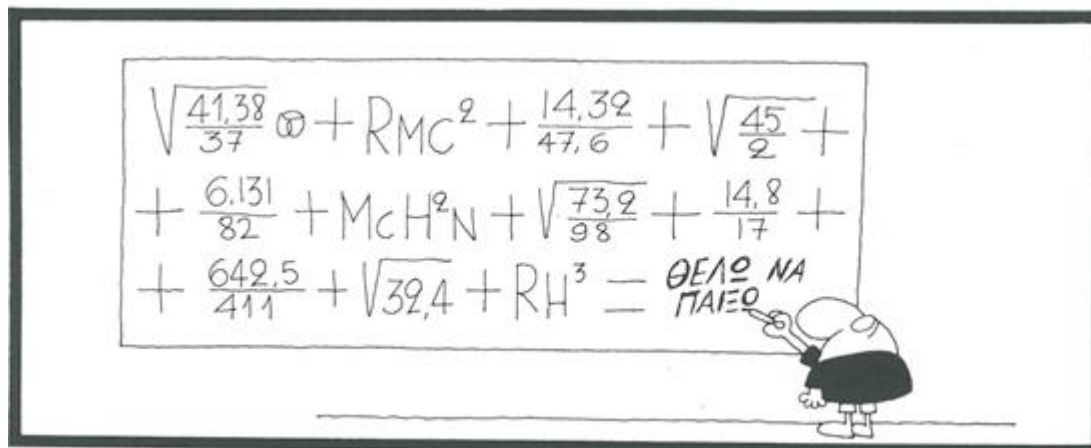 √41,38/37 ⊗ + RMC² + 14,32/47,6 + √45/2 +
+ 6.131/82 + McH²N + √73,2/98 + 14,8/17 +
+ 642,5/411 + √32,4 + RH³ = ΘΕΛΩ ΝΑ
ΠΑΙΞΩ